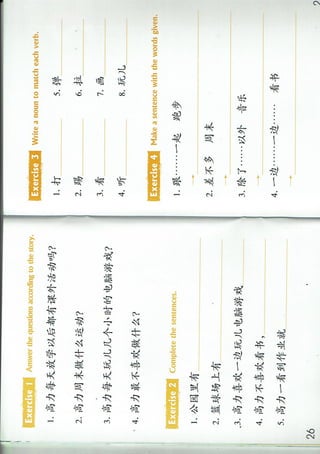 Exercise 1 Answer the questions according to the story.
1. 高力每天放学以后都有课外活动吗?
2. 高力周末做什么运动?
3. 高力每天玩儿几个小时的电脑游戏?
4. 高力最不喜欢做什么?
Exercise 2 Complete the sentences.
1. 公园里有
2. 篮球场上有
3. 高力喜欢一边玩儿电脑游戏
4. 高力不喜欢看书,
5. 高力一看到作业就
26
Exercise 3 Write a noun to match each verb.
1. 打 5. 弹
2. 踢 6. 拉
3. 看 7. 画
4. 听 8. 玩儿
Exercise 4 Make a sentence with the words given.
1. 跟……一起 跑步
→
2. 差不多 周末
→
3. 除了……以外 音乐
→
4. 一边……一边…… 看书
→